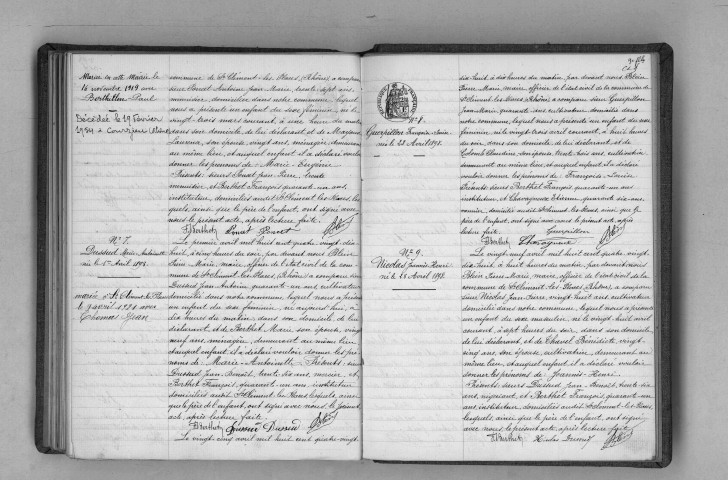 Mariée en cette Mairie le
16 novembre 1919 avec
Berthillon Paul
Décédée le 19 Février
1984 à Courzieu (Rhône)
commune de St Clément-les-Places (Rhône) a comparu
sieur Ponsat Antoine Jean Marie, trente sept ans,
menuisier, domicilié dans notre commune, lequel
nous a présenté un enfant du sexe féminin, né le
vingt-trois mars courant, à une heure du matin
dans son domicile, de lui déclarant et de
son épouse, vingt ans, ménagère, demeurant
au même lieu, et auquel enfant il a déclaré vouloir
donner les prénoms de Marie-Eugénie
Présents: sieurs Ponsat Jean-Pierre, trente
menuisier, et Berthet François quarante un ans,
instituteur, domiciliés audit St Clément les Places, les-
quels, ainsi que le père de l'enfant, ont signé avec
nous le présent acte, après lecture faite.
F. Berthet Ponsat Ponsat
N° 7.
Dussud Marie Antoinette
née le 1er Avril 1898.
mariée à St Clément les Places
le avril 1921 avec
Thomas Jean
Le premier avril mil huit cent quatre vingt-dix-
huit, à cinq heures du soir, par devant nous Blein
Jean Marie, maire, officier de l'état civil de la com-
mune de St Clément les Places (Rhône) a comparu sieur
Dussud Jean Antoine quarante-un ans cultivateur
domicilié dans notre commune, lequel nous a présenté
un enfant du sexe féminin, né aujourd'hui, à
dix heures du matin, dans son domicile, de lui
déclarant, et de Berthet Marie son épouse, vingt
neuf ans, ménagère, demeurant au même lieu
et auquel enfant il a déclaré vouloir donner les pré-
noms de Marie-Antoinette Présents: sieurs
Dussud Jean-Benoît, trente-dix ans, mercier, et
Berthet François, quarante-un ans instituteur
domiciliés audit St Clément les Places lesquels, ainsi
que le père de l'enfant, ont signé avec nous le présent
acte, après lecture faite.
F. Berthet Dussud Dussud
Le vingt cinq avril mil huit cent quatre-vingt-
N° 8.
Guerpillon Françoise Louise
née le 23 Avril 1898.
dix-huit, à dix heures du matin, par devant nous, Blein
Jean Marie, maire, officier de l'état civil de la commune de
St Clément les Places (Rhône) a comparu sieur Guerpillon
Jean Marie, quarante ans cultivateur domicilié dans
notre commune, lequel nous a présenté un enfant du sexe
féminin né le vingt trois avril courant, à huit heures
du soir, dans son domicile, de lui déclarant, et de
Colomb Claudine, son épouse, trente trois ans, cultivatrice
demeurant au même lieu, et auquel enfant il a déclaré
vouloir donner les prénoms de Françoise-Louise
Présents sieurs Berthet François quarante un ans
instituteur, et Chavagneux Etienne, quarante-dix ans,
domiciliés audit St Clément les Places, ainsi que le
père de l'enfant, ont signé avec nous le présent acte, après
lecture faite. Guerpillon
F. Berthet Chavagneux
N° 9.
Nicolas Joannès Henri
né le 25 Avril 1898.
Le vingt cinq avril mil huit cent quatre vingt-
dix-huit, à huit heures du matin, par devant nous
Blein Jean Marie, maire, officier de l'état civil de la
commune de St Clément les Places (Rhône), a comparu
sieur Nicolas Jean Pierre, vingt huit ans cultivateur
domicilié dans notre commune, lequel nous a présenté
un enfant du sexe masculin, né le vingt huit avril
courant, à sept heures du soir, dans son domicile,
de lui déclarant, et de Chavel Bénédicte vingt-
cinq ans, son épouse, cultivatrice, demeurant au
même lieu, et auquel enfant il a déclaré vouloir
donner les prénoms de Joannès-Henri.
Présents sieurs Dussud Jean-Benoît, trente-dix
ans, négociant, et Berthet François, quarante un
ans, instituteur, domiciliés audit St Clément-les-Places,
lesquels, ainsi que le père de l'enfant, ont signé
avec nous le présent acte, après lecture faite.
F. Berthet Nicolas Dussud